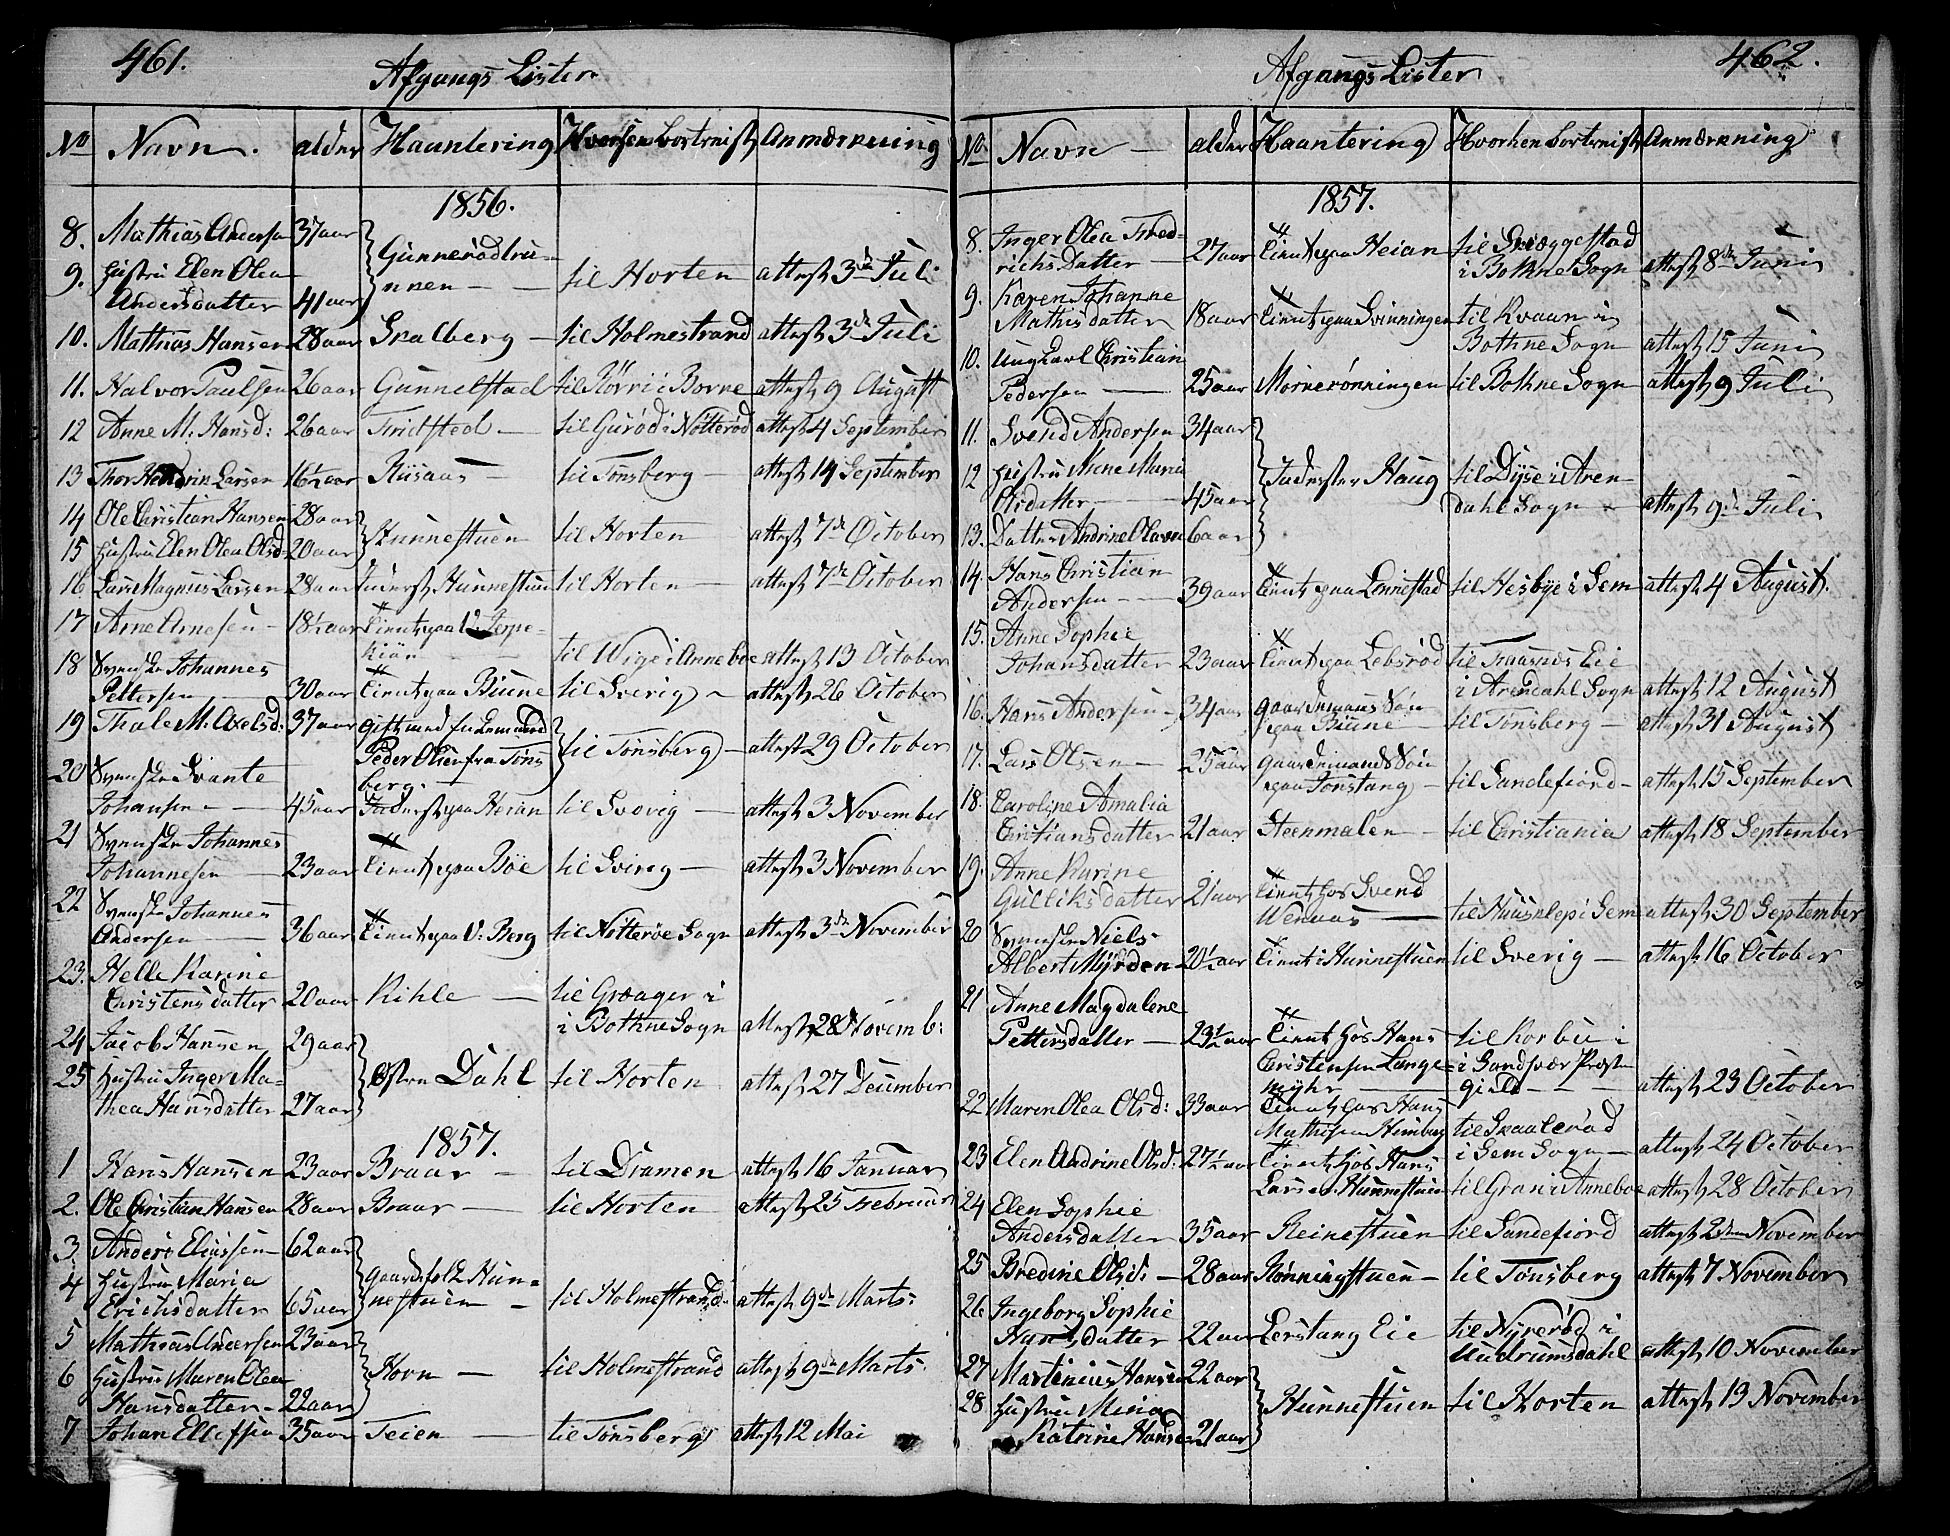 461.
Afgangs Lister
No Navn. alder Haantering Hvorhen bortreist Anmærkning
1856.
8. Mathias Andersen 37 aar
9. Hustru Elen Olea Gunnerødbru-
Andersdatter 41 aar nnen - til Horten attest 3de Juli
10. Mathias Hansen 28 aar Skalberg - til Holmestrand attest 3de Juli
11. Halvor Paulsen 26 aar Gunnelstad til Rørri i Borre attest 9 August
12 Anne M: Hansd: 26 aar Fridsted - til Gurød i Nötterød attest 4 September
13 Thor Hendrin Larsen 16½ aar Riisaas - til Tønsberg - attest 14 September
14 Ole Christian Hansen 28 aar
15 Hustru Elen Olea Olsd: 20 aar Hunnestuen til Horten attest 7de October
16 Lars Magnus Larsen 28 aar Inderst Hunnestuen til Horten - attest 7de October
17 Arne Arnesen - 18½ aar Tient paa V: Jerpe-
kiøn - til Wige i Anneboe attest 13 October
18 Svenske Johannes
Pettersen - 30 aar Tient paa Biune til Sverig - attest 26 October
19 Thale M: Axelsd: 37 aar gift med
Peder Olsen fra Tøns
berg. til Tønsberg - attest 29 October
20 Svenske Svante
Johansen - 45 aar Inderst paa Heian til Sverig - attest 3 November
21 Svenske Johannes
Johannesen - 23 aar Tient paa Bøe til Sverig - attest 3 November
22 Svenske Johannes
Andersen - 36 aar Tient paa V: Berg til Nötterøe Sogn attest 3de November
23. Helle Karine
Christensdatter 20 aar Kihle - til Græager i
i Bothne Sogn attest 28 Novemb:
24 Jacob Hansen 29 aar
25 Hustru Inger Ma-
thea Hansdatter 27 aar Østre Dahl til Horten attest 27 December
1857.
1 Hans Hansen 23 aar Braar - til Dramen attest 16 Januar
2. Ole Christian Hansen 28 aar Braar - til Horten attest 25 Februar
3 Anders Eliassen 62 aar
4 Hustru Maria
Erichsdatter 65 aar Gaardfolk Hun-
nestuen - til Holmestrand attest 9de Marts:
5 Mathias Andersen 23 aar
6 Hustru Maren Olea
Hansdatter - 22 aar Horn - til Holmestrand attest 9de Marts:
7 Johan Ellefsen 35 aar Teien - til Tønsberg attest 12 Mai
462.
Afgangs Lister
No. Navn - alder Haantering Hvorhen bortreist Anmærkning
1857.
8. Inger Olea Fred-
richsdatter - 27 aar Tient paa Heian til Skiæggestad
i Bothne Sogn attest 8de Juni
9. Karen Johanne
Mathisdatter 18 aar Tient paa Svinningen til Kvaan i
Bothne Sogn attest 15 Juni
10. Ungkarl Christian
Pedersen - 25 aar Mørnerønningen til Bothne Sogn attest 9 Juli
11. Svend Andersen 34 aar
12 Hustru Mene Maria
Olsdatter - 45 aar Inderster Haug til Dyse i Aren-
dahl Sogn - attest 9de Juli
13. Datter Andrine Olava 6 aar
14. Hans Christian
Andersen - 39 aar Tient paa Linnestad til Hesbye i Sem attest 4 August.
15. Anne Sophie
Johansdatter 23 aar Tient paa Lebsrød til Fraasnes Eie
i Arendahl Sogn attest 12 August
16. Hans Andersen - 34 aar gaardemans Søn
paa Biune - til Tønsberg - attest 31 August
17. Lars Olsen - 25 aar gaardemands Søn
paa Jonstang - til Sandefiord - attest 15 September
18. Caroline Amalia
Christiansdatter 21 aar Steenmalen - til Christiania attest 18 September
19. Anne Karine
Gulliksdatter 21 aar Tient hos Svend
Wenaas - til Huuslep i Sem attest 30 September
20 Svenske Niels
Albert Myrden 20½ aar Tient i Hunnestuen til Sverig - attest 16 October
21 Anne Magdalene
Pettersdatter - 23½ aar Tient hos Hans
Christensen Lange-
myhr - til Korbu i
i Sandsvær Præste
gield - attest 23 October
22 Maren Olea Olsd: 33 aar Tient hos Hans
Mathisen Himberg til Skaalerød
i Sem Sogn - attest 24 October
23 Elen Andrine Olsd: 27½ aar Tient hos Hans
Larsen Hunnestuen til Gran i Anneboe attest 28 October
24 Elen Sophie
Andersdatter 35 aar Reinestuen til Sandefiord attest 2den November
25 Bredine Olsd: - 28 aar Rønningstuen - til Tønsberg attest 7 November
26 Ingeborg Sophie
Hansdatter 22 aar Lerstang Eie til Nyrerød i
Undrumsdahl attest 10 November
27 Martinius Hansen 22 aar
28 Hustru Mina
Katrine Hansen 21 aar Hunnestuen til Horten attest 13 November